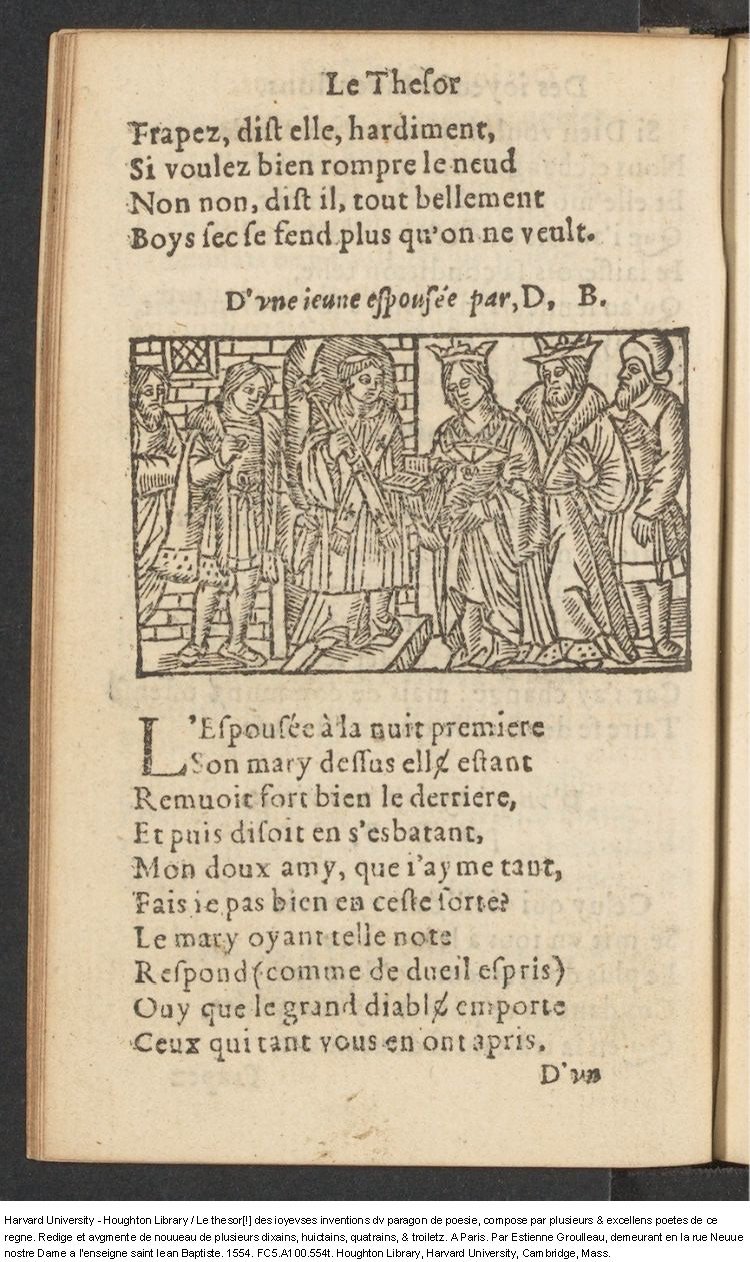 Le Theſor
Frapez, diſt elle, hardiment,
Si voulez bien rompre le neud
Non non, diſt il, tout bellement
Boys ſec ſe fend plus qu'on ne veult.
D'vne ieune eſpouſée par, D. B.
L'Eſpouſée à la nuit premiere
Son mary deſſus ellɇ eſtant
Remuoit fort bien le derriere,
Et puis diſoit en s'esbatant,
Mon doux amy, que i'ayme tant,
Fais ie pas bien en ceſte ſorte?
Le mary oyant telle note
Reſpond (comme de dueil eſpris)
Ouy que le grand diablɇ emporte
Ceux qui tant vous en ont apris.
D'vn
Harvard University - Houghton Library / Le thesor[!] des ioyevses inventions dv paragon de poesie, compose par plusieurs & excellens poetes de ce
regne. Redige et avgmente de nouueau de plusieurs dixains, huictains, quatrains, & troiletz. A Paris. Par Estienne Groulleau, demeurant en la rue Neuue
nostre Dame a l'enseigne saint Iean Baptiste. 1554. FC5.A100.554t. Houghton Library, Harvard University, Cambridge, Mass.